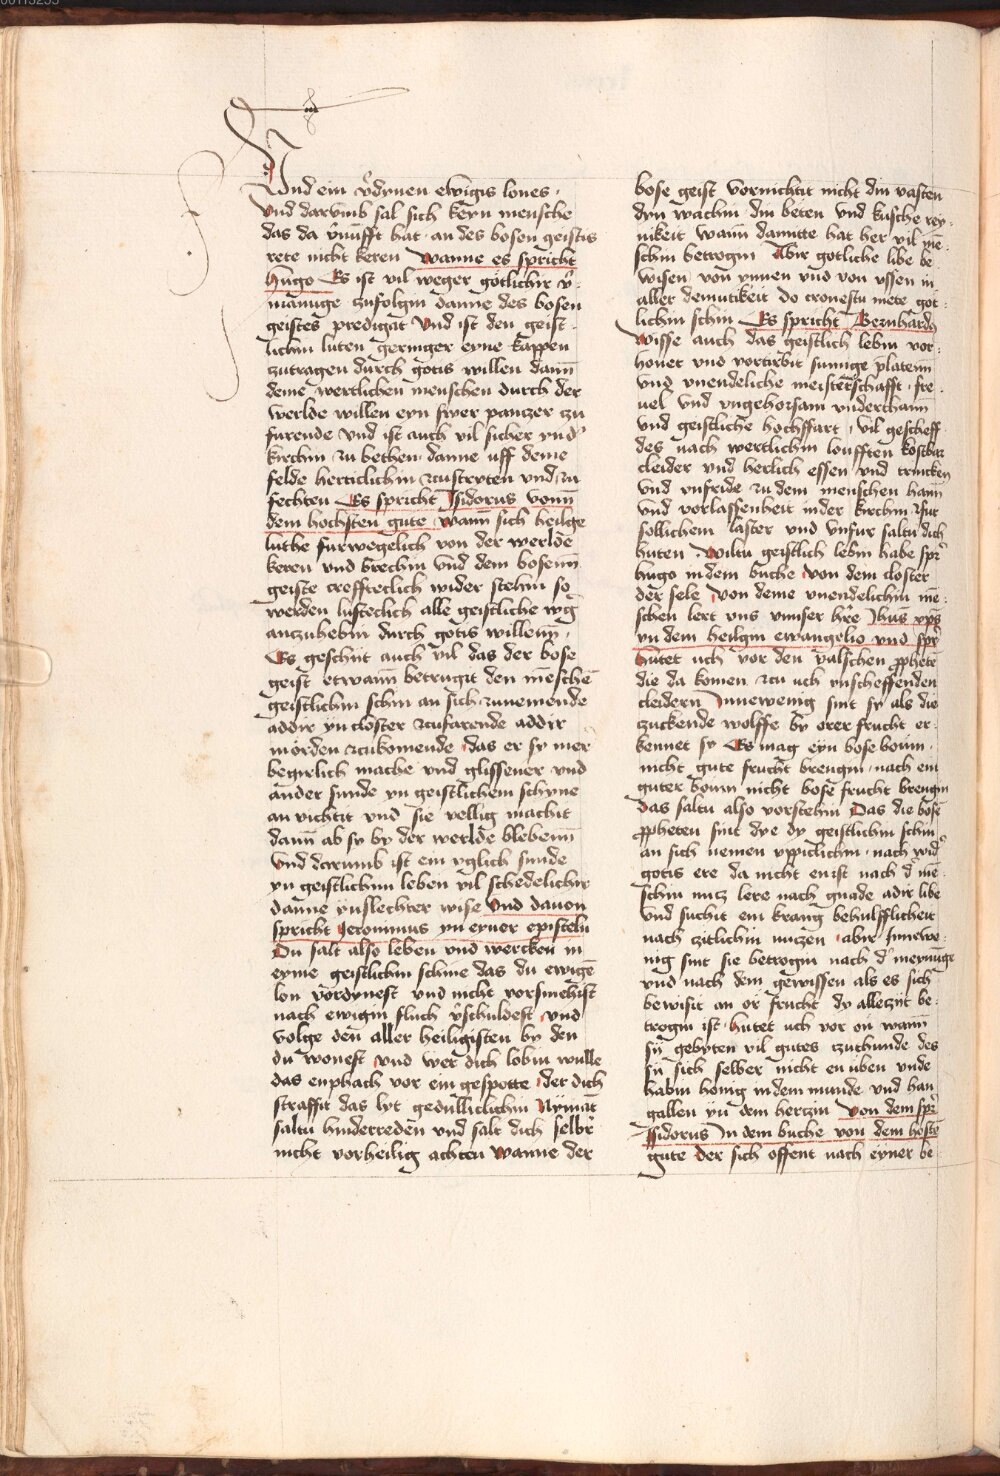 Und ein v̉dynen ewigis lones ·
Vnd darvmb sal sich keyn mensche
das da v̉nūfft hat · an des bosen geistis
rete nicht keren Wanne es spricht
hugo Es ist vil weger gotlichir v̉-
manūge zufolgin danne des bosen
geistes predigat Vnd ist den geist-
lichin luten geringer eyne kappen
zutragen durch gotis willen dann
deme wertlichen menschen durch der
werlde willen eyn swer panczer zu
furende Vnd ist auch vil sicher yn d̉
kirchin zu bethen danne uff deme
felde herticlichin czustryten und zu
fechten Es spricht Isidorus vonn
dem hochsten gute Wann sich heilge
luthe furwegelich von der werlde
keren und brechin vnd dem bosenn
geiste creffteclich wider stehin so
werden lusteclich alle geistliche weg
anzuhebin durch gotis willenn ·
Es geschiit auch vil das der bose
geist etwann betrugit den mēschē
geistlichin schin an sich zunemende
addir yn closter czufarende addir
in orden czukomende das er sy mer
begirlich mache und glissener und
ander sunde yn geistlichem schyne
an richtit und sie vellig machit
dann ab sy by der werlde blebenn
Vnd darumb ist ein yglich sunde
yn geistlichin leben vil schedelichir
danne ynslechter wise Vnd davon
spricht Jeronimus yn eyner episteln
Du salt also leben vnd wercken in
eyme geistlichin schine das du ewigē
lon v̉ordynest und nicht vorsmehist
nach ewigin fluch v̉schuldest vnd
volge den aller heiligisten by den
du wonest vnd wer dich lobin wulle
das enphach vor ein gespotte der dich
straffit das lyt gedulliclichin Nymāt
saltu hinderreden vnd salt dich selbr
nicht vorheilig achten Wanne der
bose geist vornichtit nicht din vasten
dyn wachin din beten vnd kusche rey-
nikeit wann damitte hat her vil mē-
schin betrogin Abir gotliche libe be
wisen von ynnen vnd von ussen in
aller demutikeit do cronestu mete got-
lichin schin Es spricht Bernhard9
Wisse auch das geistlich lebin vor-
honet vnd vortirbit sunige platenn
vnd vnendeliche meisterschafft · fre-
uel vnd vngehorsam vnderthann
vnd geistliche hochffart · vil gescheff-
des nach wertlichin loufften kostbar
cleider vnd herlich essen vnd trincken
Vnd vnfride zu dem menschen hann
vnd vorlassenheit in der kirchin Fur
sollichem laster vnd vnfur saltu dich
huten Wiltu geistlich lebin habe spr̉
hugo in dem buche von dem closter
der sele von deme vnendelichin mē-
schen lert vns vnnser hr̄e Jhūs xp̄s
yn dem heilgin ewangelio vnd spr̉
hutet uch vor den valschen ꝓphetē
die da komen czu uch ynscheffenden
cleidern Innewenig sint sy als die
zuckende wolffe by orer frucht er-
kennet sy Es mag eyn bose boum ·
nicht gute frucht brengin nach ein
guter boum nicht bose frucht brengin
das saltu also vorstehin Das die bosē
ꝓpheten sint dye dy geistlichin schin
an sich nemen uppiclichin · nach wid̉
gotis ere da nicht en ist nach d̉ mē-
schin nutz lere nach gnade adir libe
vnd suchit ein krang behulfflicheit
nach zitlichin nutzen abir Innewe-
nig sint sie betrogin nach d̉ meynūge
vnd nach dem gewissen als es sich
bewisit an or frucht dy alleczyt be-
trogin ist hutet uch vor on wann
sy gebyten vil gutes zuthunde des
sy sich selber nicht en uben vnde
habin honig in dem munde vnd han
gallen yn dem hertzin Von dem spr̉
Issidorus In dem buche von dem hostē
gute der sich offent nach eyner be-